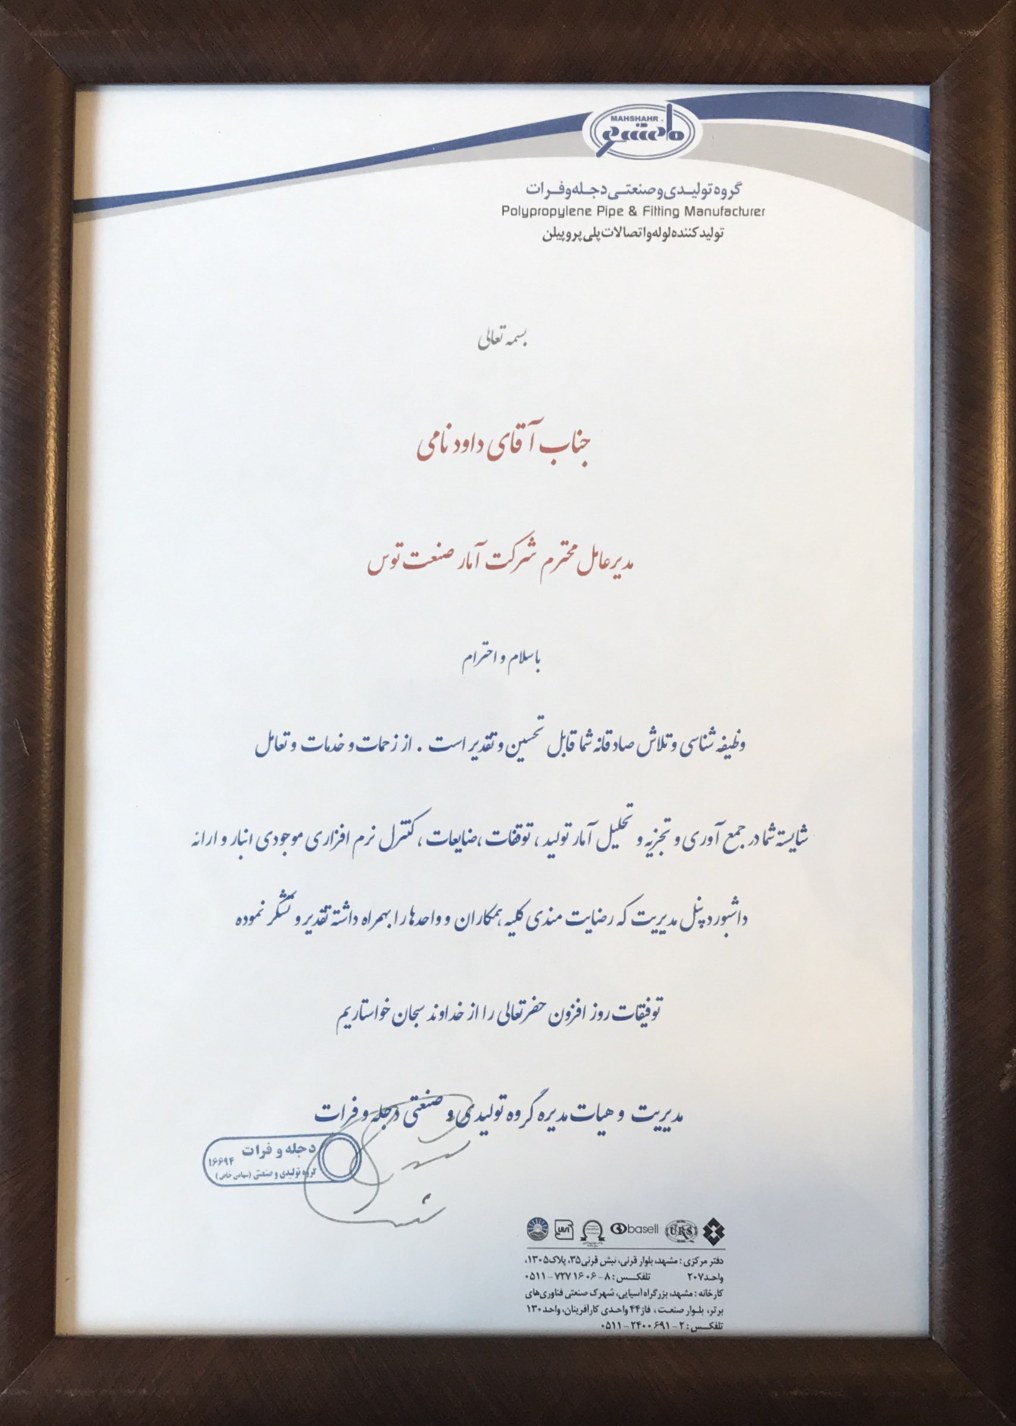 MAHSHAHR
ماهشهر
گروه تولیدی و صنعتی دجله و فرات
Polypropylene Pipe & Fitting Manufacturer
تولید کننده لوله و اتصالات پلی پروپیلن
بسمه تعالی
جناب آقای داود نامی
مدیرعامل محترم شرکت آمار صنعت توس
باسلام و احترام
وظیفه شناسی و تلاش صادقانه شما قابل تحسین و تقدیر است . از زحمات و خدمات و تعامل
شایسته شما در جمع آوری و تجزیه و تحلیل آمار تولید ، توقفات ،ضایعات ، کنترل نرم افزاری موجودی انبار و ارائه
داشبورد پنل مدیریت که رضایت مندی کلیه همکاران و واحدها را بهمراه داشته تقدیر و تشکر نموده
توفیقات روز افزون حضرتعالی را از خداوند سبحان خواستاریم
مدیریت و هیات مدیره گروه تولیدی و صنعتی دجله و فرات
دجله و فرات
۱۶۶۹۴
گروه تولیدی و صنعتی (سهامی خاص)
basell URS
دفتر مرکزی : مشهد، بلوار قرنی، نبش قرنی۳۵، پلاک۱۳۰۵،
واحد۲۰۷ تلفکس : ۸-۷۲۷۱۶۰۶-۰۵۱۱
کارخانه : مشهد، بزرگراه آسیایی، شهرک صنعتی فناوری‌های
برتر، بلوار صنعت ، فاز۴۴ واحدی کارآفرینان، واحد۱۳۰
تلفکس : ۲-۲۴۰۰۶۹۱-۰۵۱۱